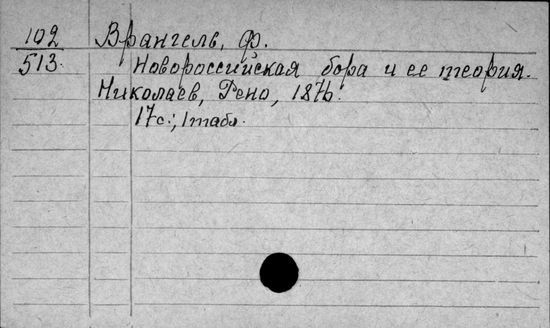 102 Врангель, Ф.
513. Новороссийская бора и ее теория.
Николаев, Рено, 1876.
17с.; 1 табл.